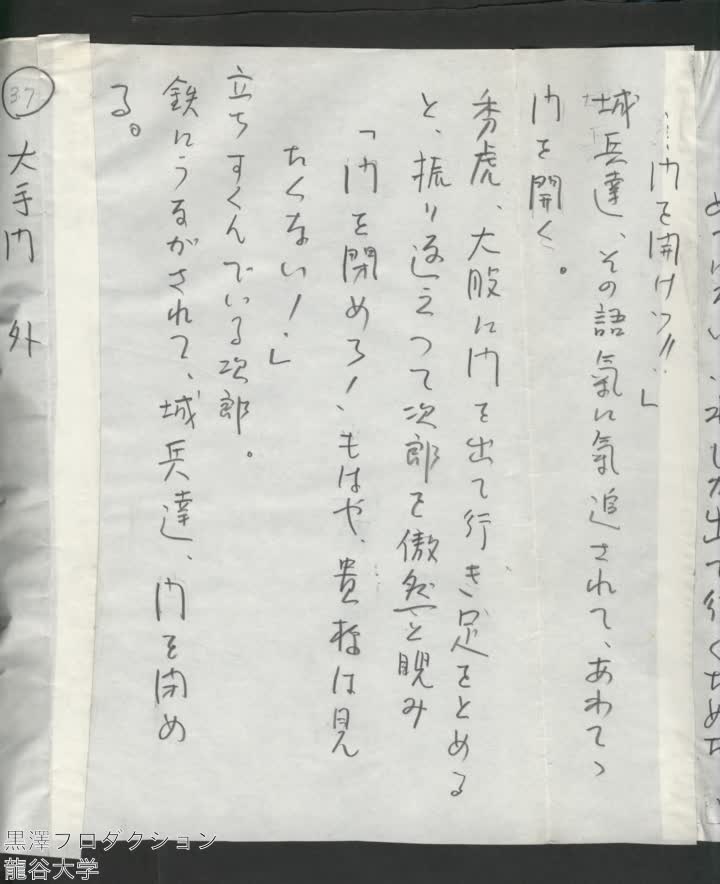 門を開けッ!!」
城兵達、その語氣に氣追されて、あわてゝ
門を開く。
秀虎、大股に門を出て行き足をとめる
と、振り返えつて次郎を傲然と睨み
「門を閉めろ!、もはや、貴様は見
たくない!」
立ちすくんでいる次郎。
鉄にうながされて、城兵達、門を閉め
る。
37 大手門 外
黒澤プロダクション
龍谷大学